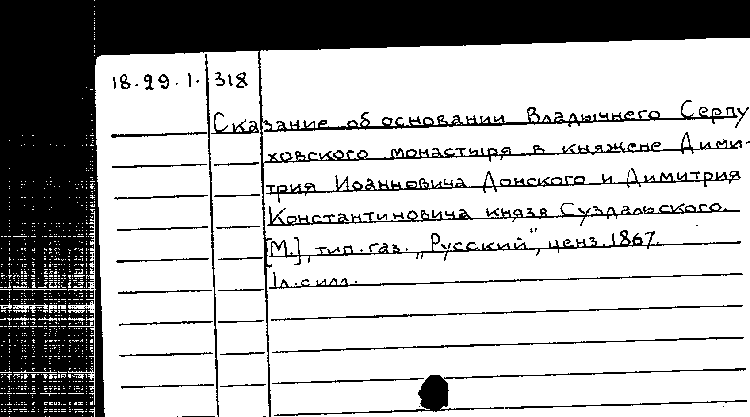 18.29.1. 318
Сказание об основании Владычнего Серпу
ховского монастыря в княжене Дими-
трия Иоанновича Донского и Димитрия
Константиновича князя Суздальского.
[М.], тип. газ. „Русский", ценз. 1867.
1л. илл.